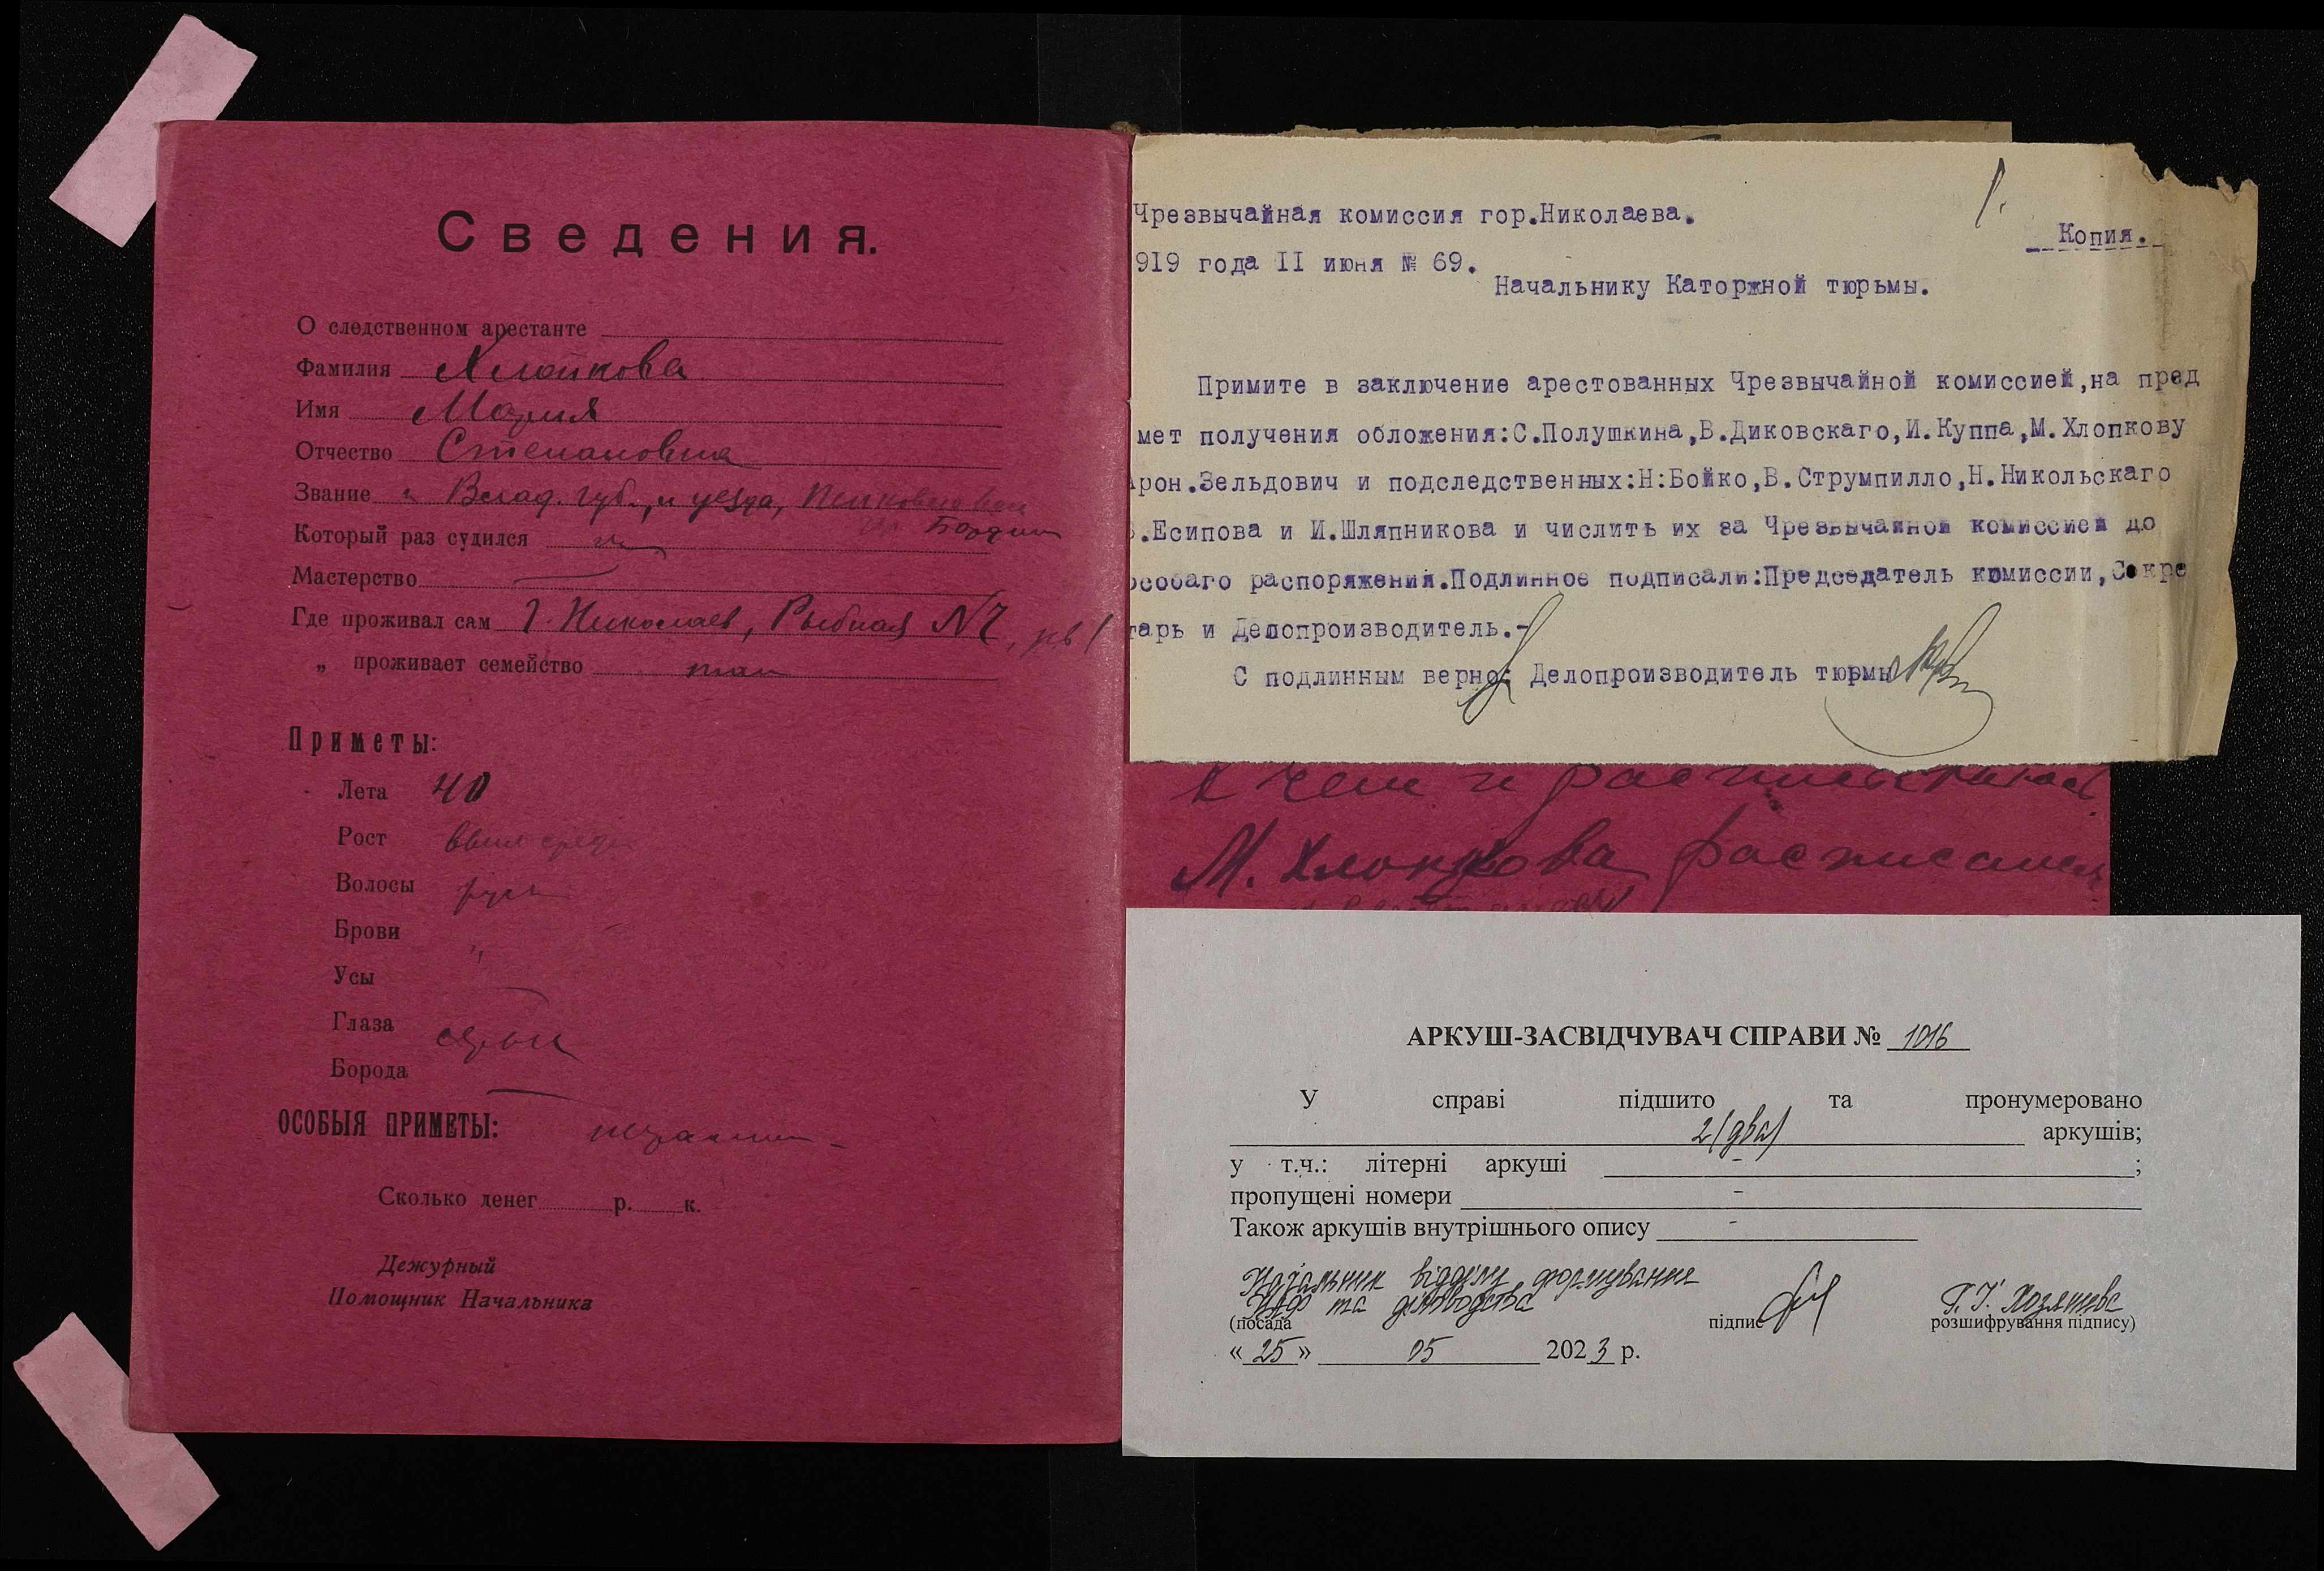 Сведения.
О следственном арестанте
Фамилия Хлопкова
Имя Мария
Отчество Степановна
Звание Влад. губ., и уезда,
Который раз судился
Мастерство
Где проживал сам г. Николаев, Рыбная №7, кв 1
„ проживает семейство там
Приметы:
Лета 40
Рост выше средн
Волосы рус
Брови "
Усы —
Глаза серые
Борода —
ОСОБЫЯ ПРИМЕТЫ:
Сколько денег р. к.
Дежурный
Помощник Начальника
1.
Чрезвычайная комиссия гор.Николаева.
Копия.
919 года II июня № 69.
Начальнику Каторжной тюрьмы.
Примите в заключение арестованных Чрезвычайной комиссией,на пред
мет получения обложения:С.Полушкина,В.Диковскаго,И.Куппа,М.Хлопкову
Арон.Зельдович и подследственных:Н:Бойко,В.Струмпилло,Н.Никольскаго
.Есипова и И.Шляпникова и числить их за Чрезвычайной комиссией до
особаго распоряжения.Подлинное подписали:Председатель комиссии,Секре
тарь и Делопроизводитель.-
С подлинным верно: Делопроизводитель тюрмы
в чем и
М. Хлопкова
АРКУШ-ЗАСВІДЧУВАЧ СПРАВИ № 1016
У справі підшито та пронумеровано
2 (два) аркушів;
у т.ч.: літерні аркуші - ;
пропущені номери -
Також аркушів внутрішнього опису -
Начальник відділу формування
НАФ та діловодства Г.І. Хозяшева
(посада підпис розшифрування підпису)
«25» 05 2023 р.